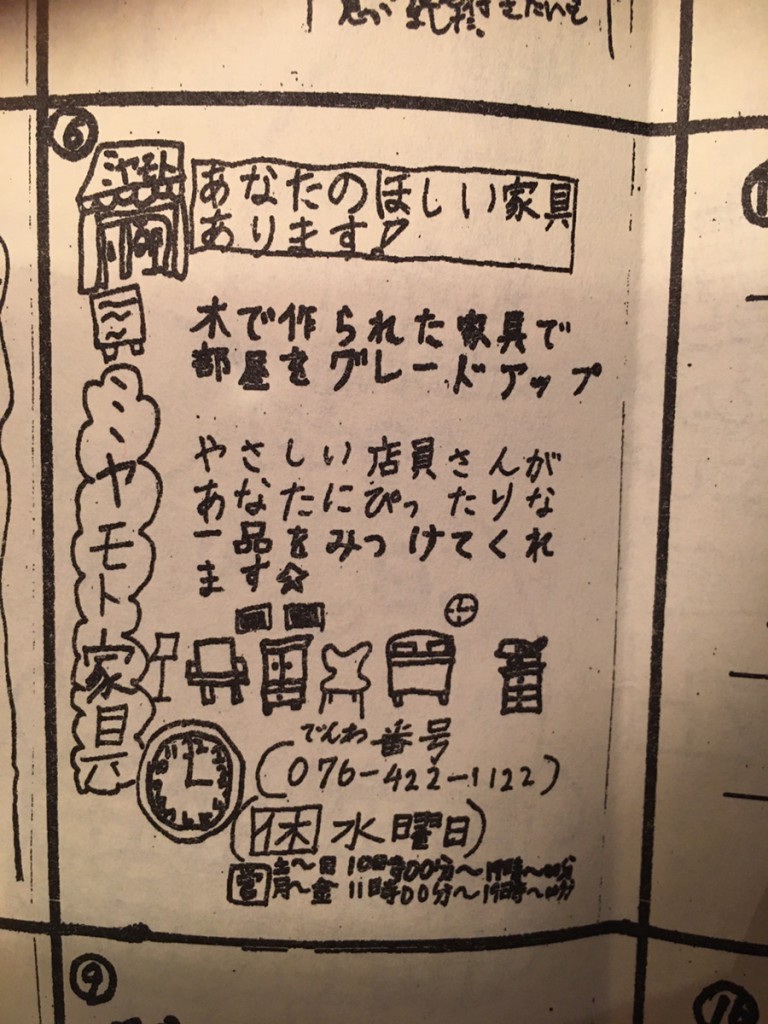 ⑥
ミヤモト
あなたのほしい家具
あります!
木で作られた家具で
部屋をグレードアップ
ミヤモト家具
やさしい店員さんが
あなたにぴったりな
一品をみつけてくれ
ます☆
でんわ番号
(076-422-1122)
(休 水曜日)
営 土〜日 10時00分〜19時
月〜金 11時00分〜19時
⑨